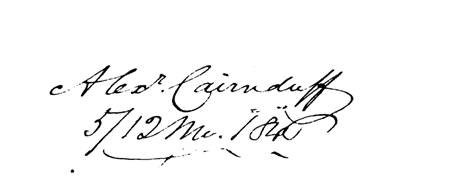 Alexr. Cairnduff
5/12 Mo.